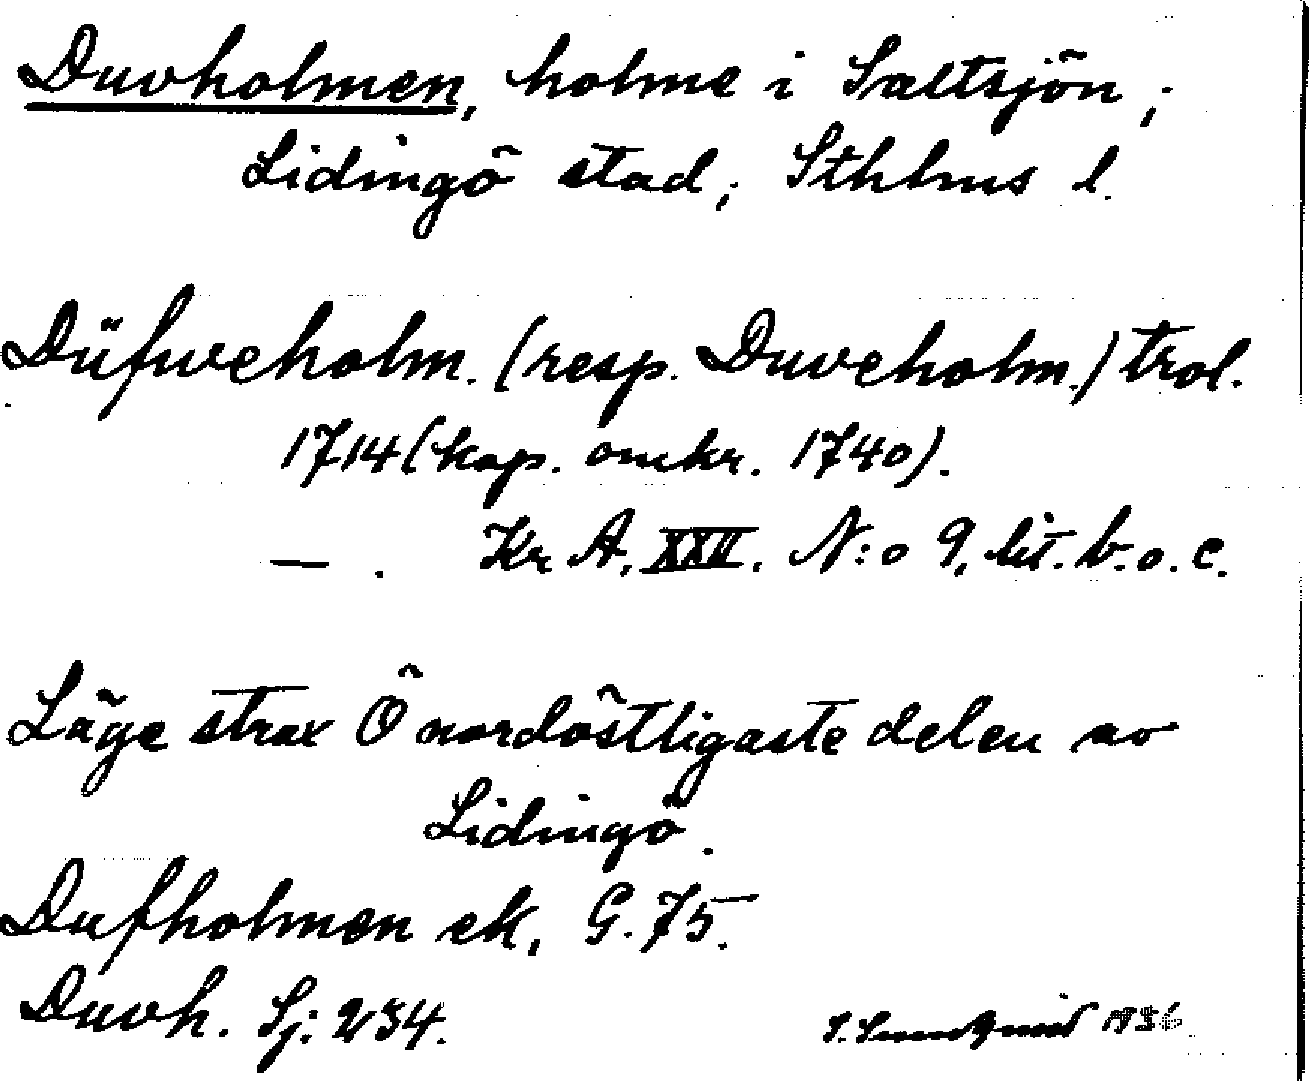 Duvholmen, holme i Saltsjön,
Lidingö stad, Sthlms l.
Düfweholm. (resp. Duveholm.) trol.
1714 (kop. omkr. 1740).
— . Kr. A. XXV. N:o 9, lit. b. o. c.
Läge strax Ö nordöstligaste delen av
Lidingö.
Dufholmen ek, G. 75.
Duvh. Sj: 234.
1936